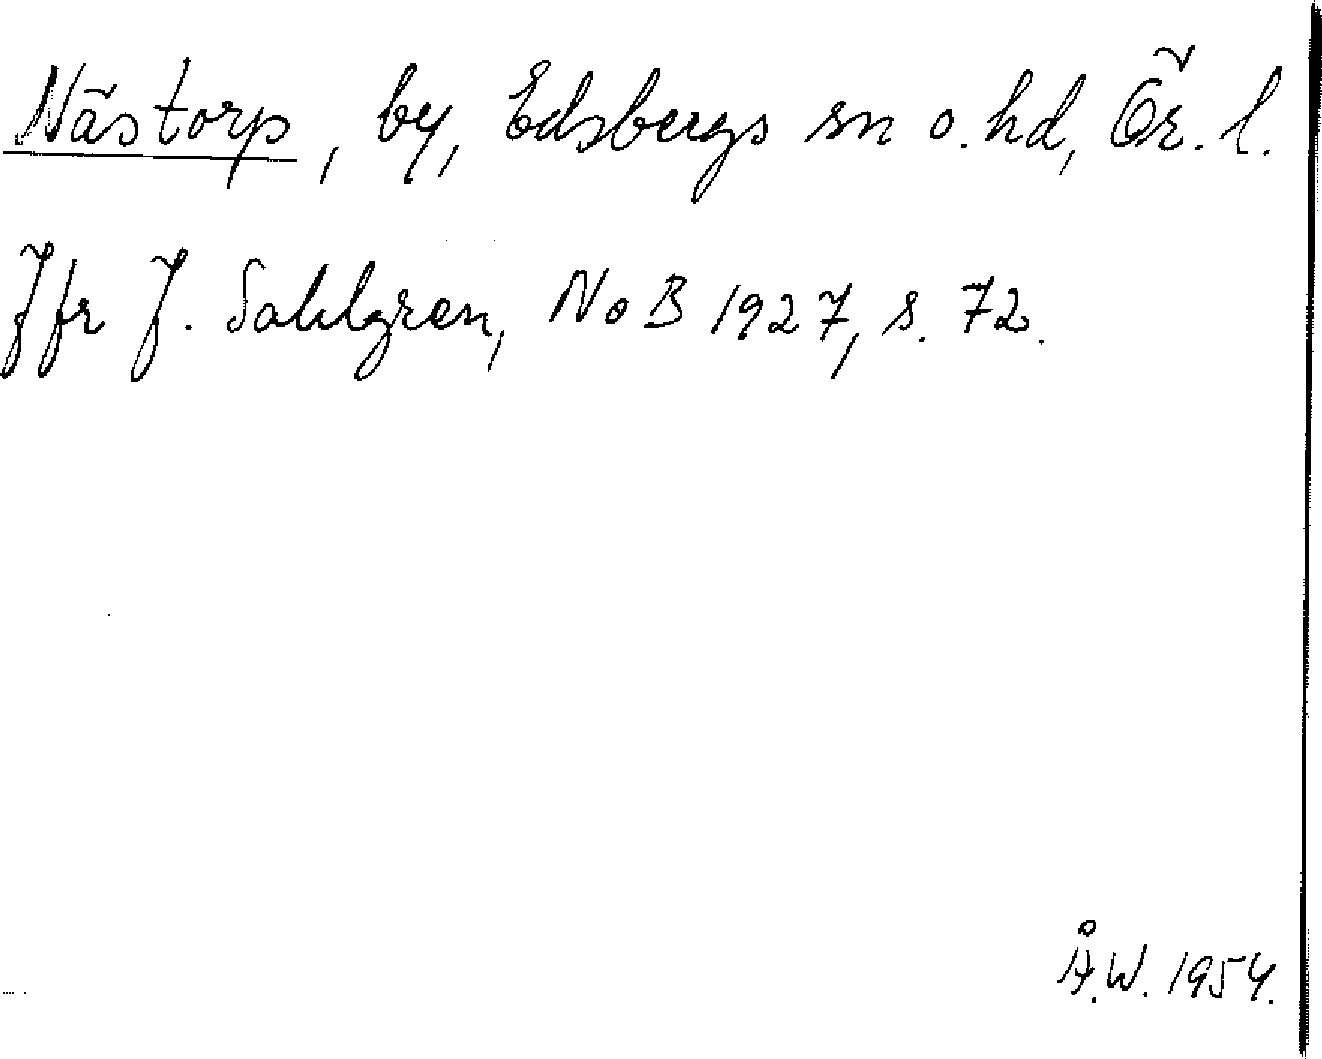 Nästorp, by, Edsbergs sn o. hd, Ör. l.
Jfr J. Sahlgren, NoB 1927, s. 72.
Å.W. 1954.